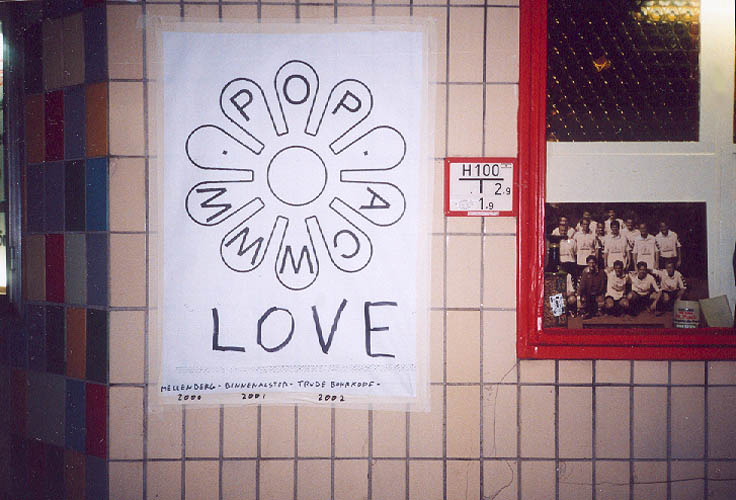 WWW.POP.AC
LOVE
MELLENBERG - BINNENALSTER - TRUDE BOHRKOPF -
2000 2001 2002
H100
2,9
1,9